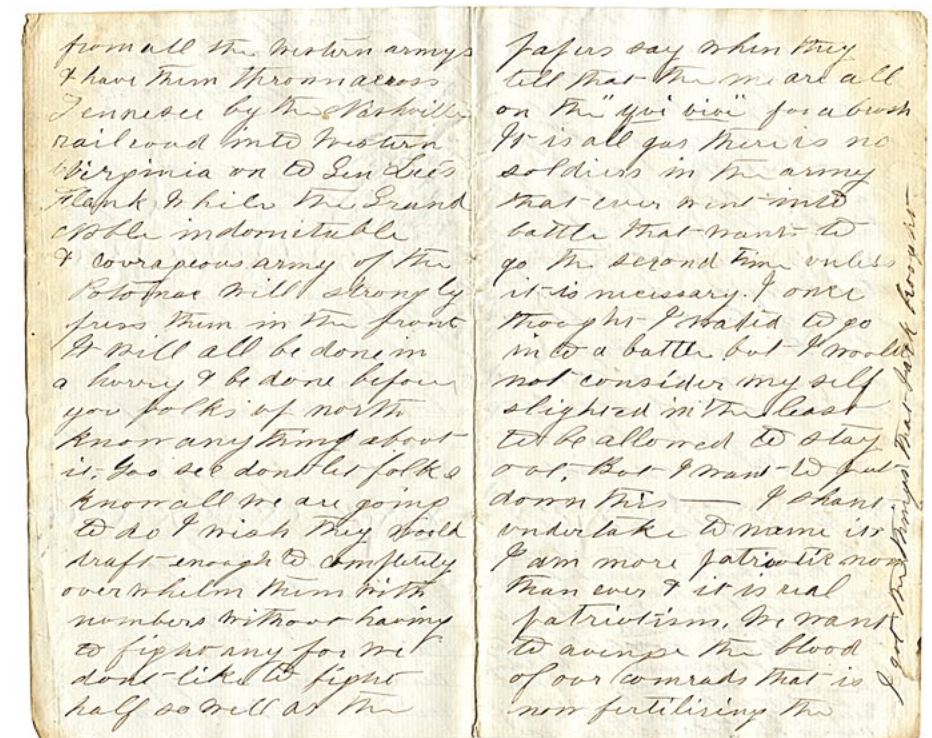 from all the Western armys
& have them thrown across
Tennesee by the Nashville
railroad into Western
Virginia on to Gen Lee's
Flank While the Grand
noble indomitable
& courageous army of the
Potomac will strongly
press them in the front
It will all be done in
a hurry & be done before
you folks of north
know anything about
it. You see dont let folks
know all we are going
to do I wish they would
draft enough to completely
overwhelm them with
numbers without having
to fight any for we
dont like to fight
half so well as the
papers say when they
tell that the me are all
on the "qvi vive" for a brush
It is all gas there is no
soldiers in the army
that ever went into
battle that wants to
go the second time unless
it is necessary. I once
thought I wated to go
into a battle but I would
not consider my self
slighted in the least
to be allowed to stay
out. But I want to put
down this — I shant
undertake to name it
I am more patriotic now
than ever & it is real
patriotism. We want
to avenge the blood
of our comrads that is
now fertilising the
I got the things that Jack brought